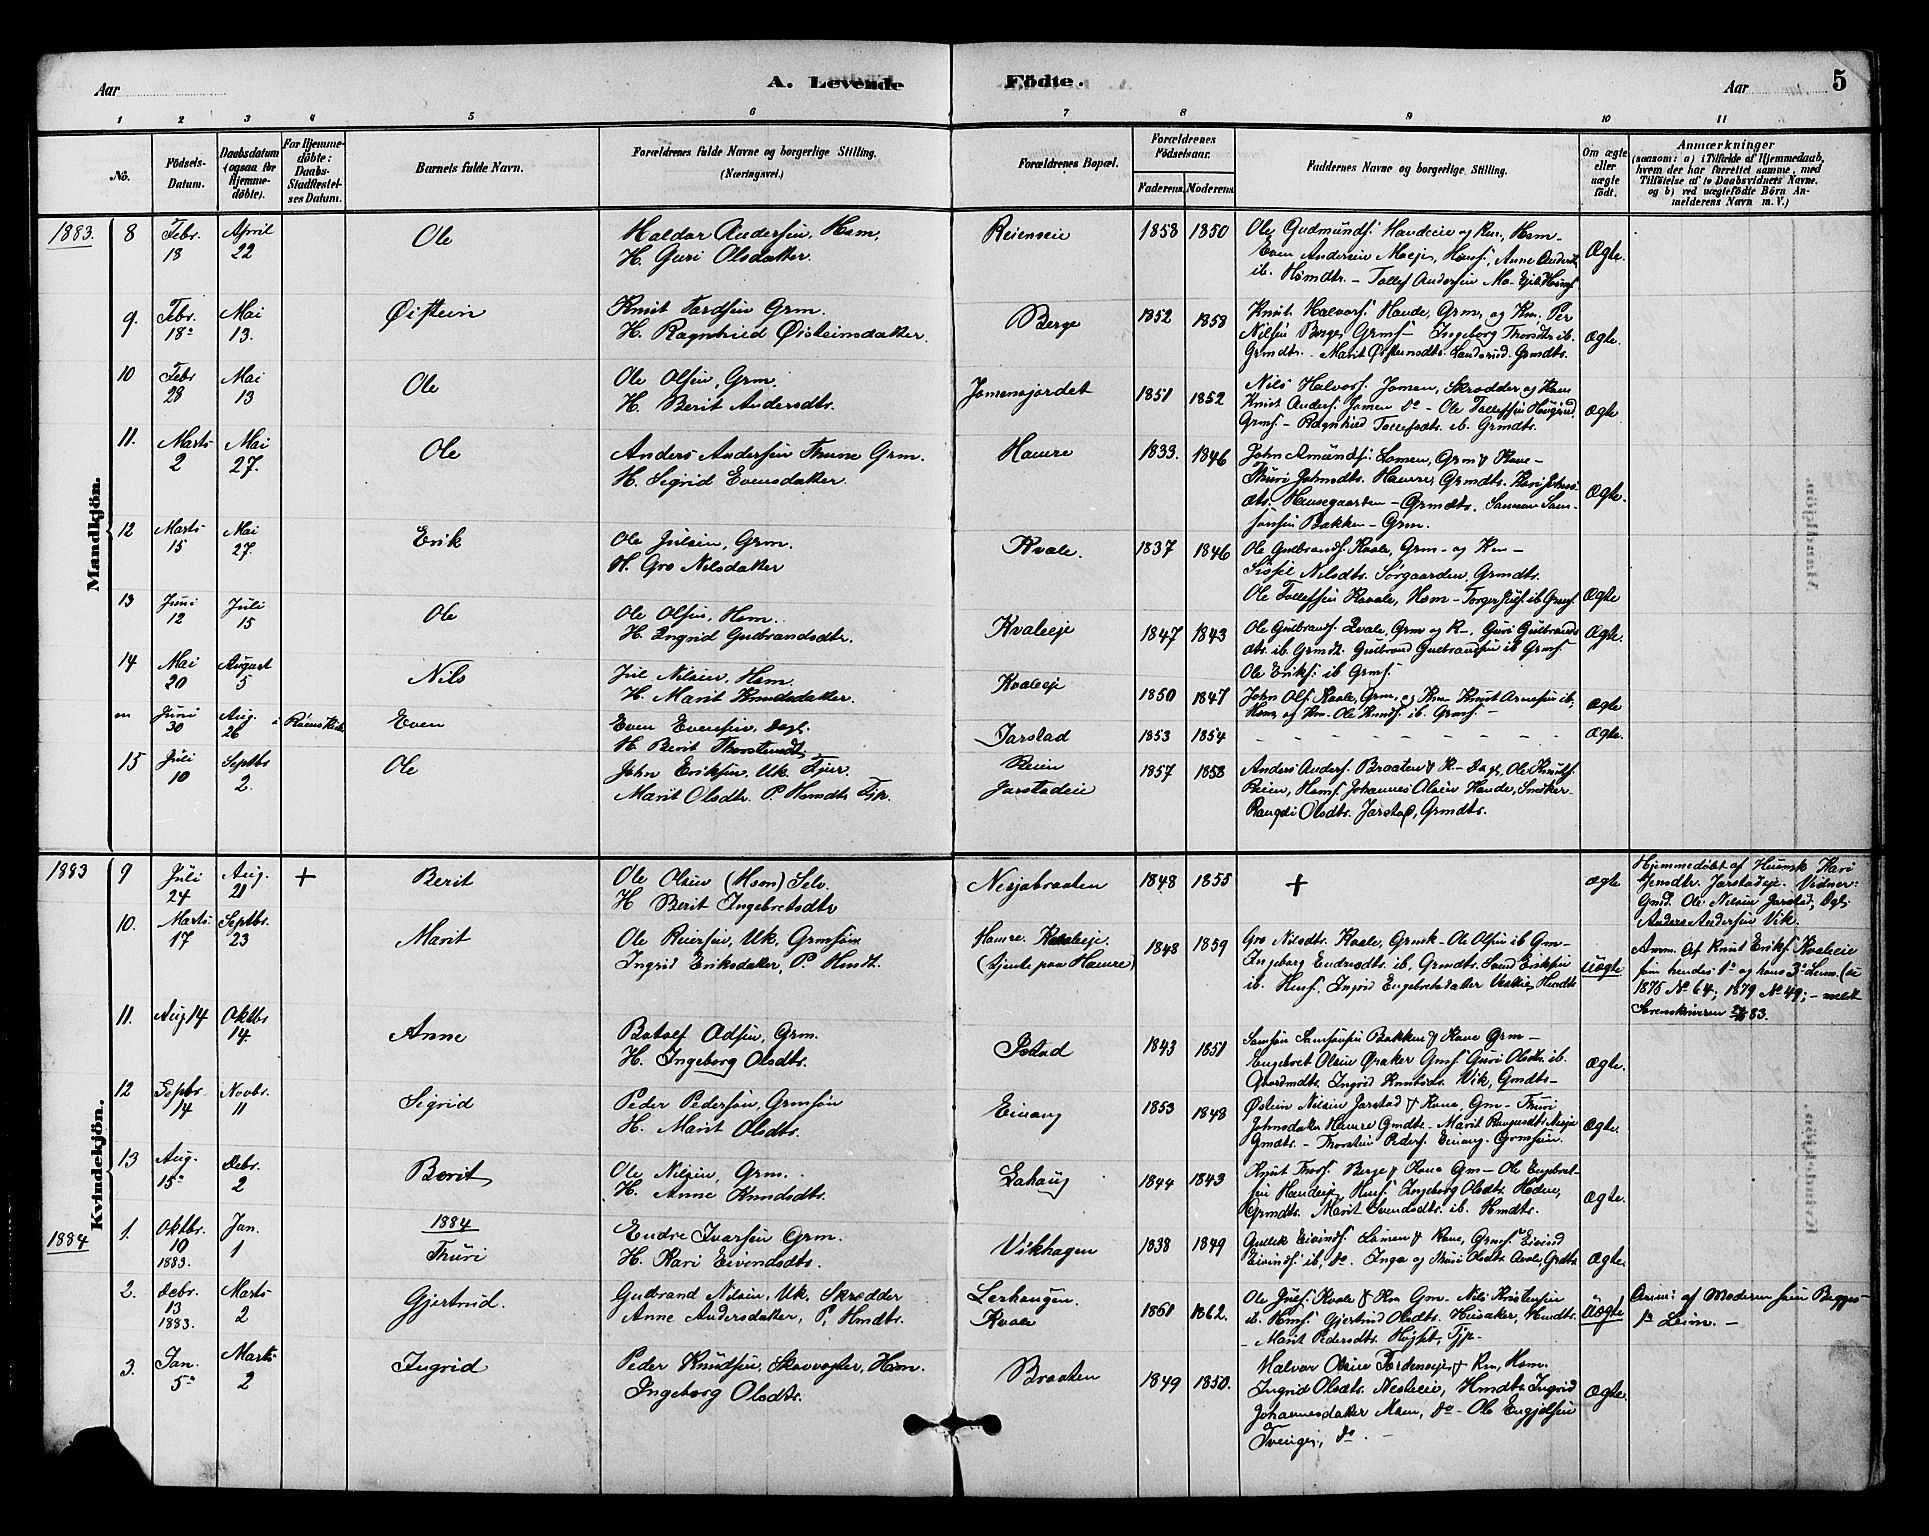 Aar
A. Levende
Födte.
Aar
5
1 2 3 4 5 6 7 8 9 10 11
No.
Födsels-Datum.
Daabsdatum (ogsaa for Hjemmedöbte).
For Hjemmedöbte: Daabs-Stadfæstelses Datum.
Barnets fulde Navn.
Forældrenes fulde Navne og borgerlige Stilling.
(Næringsvei.)
Forældrenes Bopæl.
Forældrenes Födselsaar.
Faderens. Moderens.
Faddernes Navne og borgerlige Stilling.
Om ægte eller uægte födt.
Anmærkninger
(saasom: a) i Tilfælde af Hjemmedaab,
hvem der har forrettet samme, med
Tilföielse af to Daabsvidners Navne,
og b) ved uægtefödte Börn Anmelderens Navn m. V.)
Mandkjön.
1883. 8 Febr. 18 April 22 Ole
Haldor Andersen, Hsm,
H. Guri Olsdatter.
Reienseie 1858 1850
Ole Gudmunds. Handeie og Kn., Hsm-
Even Andersen
ib. Hsmdtr. - Tollef Andersen
Ægte.
9. Febr. 18 Mai 13. Øistein
Knut Tordsen Grm.
H. Ragnhild Øisteinsdatter.
Berge 1852 1858
Knut Halvors. Hande, Grm, og Kn. Per
Nilsen Berge, Grms- Ingeborg Thorsdtr ib.
Grmdtr. - Marit Øisteinsdtr. Landsrud. Grmdtr.
Ægte.
10 Febr 28 Mai 13 Ole
Ole Olsen, Grm.
H. Berit Andersdtr.
Jomensjordet 1851 1852
Nils Halvors. Jomen, Skrædder og Kone
Knut Anders. Jomen do - Ole Tollefsen
Grms - Ragnhild Tollefsdtr. ib. Grmdtr.
Ægte
11. Marts 2 Mai 27. Ole
Anders Andersen Thune Grm.
H. Sigrid Evensdatter.
Hamre 1833. 1846
John Amunds. Lomen, Grm & Kone -
Thuri Johnsdtr. Hamre, Grmdtr. Kari Johnsdtr. Hausegaarden - Grmdtr. Samson Samsonsen Bakken - Grm.
Ægte.
12 Marts 15 Mai 27. Erik
Ole Julsen, Grm.
H. Gro Nilsdatter
Kvale. 1837 1846
Ole Gulbrands. Kvale, Grm - og Kn -
Sissel Nilsdtr. Sørgaarden, Grmdtr.
Ole Tollefsen Kvale, Hsm - Torger Juls. ib Grms.
Ægte
13 Juni 12 Juli 15 Ole
Ole Olsen, Hsm.
H. Ingrid Gudbrandsdtr.
Kvaleeje 1847 1843
Ole Gulbrands. Qvale, Grm og K-, Guri Gulbrandsdtr. ib. Grmdt. Gulbrand Gulbrandsen ib Grms.
Ole Eriks. ib Grms.
Ægte.
14 Mai 20 August 5 Nils
Jul Nilsen, Hsm.
H. Marit Knudsdatter.
Kvaleeje 1850 1847
John Ols. Kvale, Grm, og Kn - Knut Arnesen ib,
Hsm, og Kn. Ole Knuds. ib. Grms. -
Ægte
Juni 30 Aug. 26 Even
Even Evensen, Dagl.
H. Berit Thorsteinsdtr.
Jarstad 1853 1854
Ægte.
15 Juli 10 Septbr 2. Ole
John Eriksen, Uk. Tjen.
Marit Olsdtr. P. Hsmdtr. Tjp.
Reien
Jarstadeie 1857 1858
Anders Anders. Braaten & K- Dagl, Ole Knuds.
Reien, Hsms. Johannes Olsen Hande, Snedker-
Rangdi Olsdtr. Jarstad, Grmdtr.
Kvindekjön.
1883 9 Juli 24 Aug. 21 + Berit
Ole Olsen (Hsm) Selv.
H Berit Ingebretsdtr
Nesjabraaten 1848 1855 + ægte
Hjemmedøbt af Husmsk Kari
Jensdtr. Jarstadeje. Vidner:
Gmd. Ole Nilsen Jarstad, Dagl.
Anders Andersen Vik.
10. Marts 17 Septbr. 23 Marit
Ole Reiersen, Uk, Grmsøn
Ingrid Eriksdatter, P. Hmdt.
Hamre. Kvaleeje.
(tjente paa Hamre) 1848 1859
Gro Nilsdtr. Kvale, Grmsk - Ole Olsen ib Gm -
Ingeborg Endresdtr. ib, Grmdtr. Svend Eriksen
ib. Husf. Ingrid Engebretsdatter
uægte
Anm. af Knut Eriks. Kvaleeie
som hendes 1ste og hans 3die Leierm. (se
1875 No 64; 1879 No 49; - meldt
Sorenskriveren 83.
11. Aug 14 Oktbr 14. Anne
Botolf Odsen, Grm.
H. Ingeborg Olsdtr.
Istad 1843 1851
Samson Samsonsen Bakken & Kone Grm -
Engebret Olsen Øraker Gmsf. Guri Olsdtr. ib.
Ingrid Knutsdtr. Vik, Gmdtr-
Ægte.
12 Septbr 14 Novbr. 11 Sigrid
Peder Pedersøn, Grmsøn
H. Marit Olsdtr.
Einang 1853 1848
Østein Nilsen Jarstad & Kone, Gm - Thuri
Johnsdatter Hamre Gmdtr. - Marit
Gmdtr. - Thorstein Peders. Einang. Grmsøn.
Ægte.
13 Aug. 15 Debr. 2 Berit
Ole Nilsen, Grm.
H. Anne Knudsdtr.
Lahaug 1844 1843
Knut Thors. Berge & Kone Gm - Ole Engebretsen Handeeje, Husf. Ingeborg Olsdtr. Hedne,
Grmdtr. Marit Svendsdtr. ib. Hmdtr.
Ægte.
1884 1. Oktbr. 10 1883. Jan. 1 1884 Thuri
Endre Ivarsen Grm.
H. Kari Eivendsdtr.
Vikhagen 1838 1849
Gullik Eivinds. Lomen & Kone, Grms. Eivind
Eivinds. ib, do. Inga og Thuri Olsdtr.
Ægte.
2. Debr. 13 1883. Marts 2 Gjertrud.
Gudbrand Nilsen, Uk. Skrædder
Anne Andersdatter, P. Hmdtr.
Lerhaugen.
Kvale 1861 1862.
Ole Juls. Kvale & Kn Gm - Nils Kristensen
ib. Hms. Gjertrud Olsdtr. Husaker, Hmdtr.
- Marit Pedersdtr. Tjp. -
Uægte
Anm: af Moderen som Begges
1ste Leierm. -
3. Jan. 5 Marts 2 Ingrid
Peder Knudsen, Skovvogter, Hsm.
Ingeborg Olsdtr.
Braaten 1849 1850.
Halvor Olsen & Kn, Hsm.
Ingrid Olsdtr. Hmdtr. Ingrid
Johannesdatter Moen, do - Ole
Tvenge, do. -
Ægte.